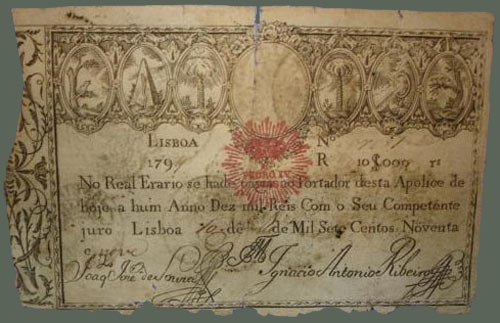 LISBOA Nº
179 R 10$000 rs
PEDRO IV
No Real Erario se hade pagar ao Portador desta Apolice de
hoje a hum Anno Dez mil Reis Com o Seu Competente
juro Lisboa de de Mil Sete Centos Noventa
e nove
Joaqm José de Souza Ignacio Antonio Ribeiro